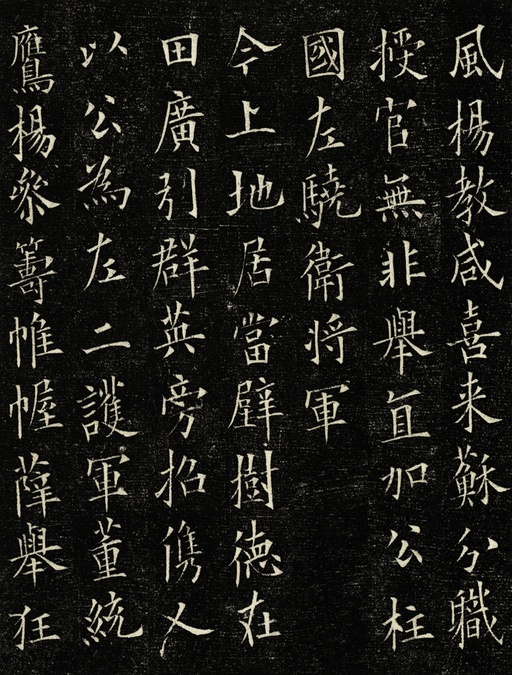 風楊教咸喜来蘇分職
授官無非舉直加公柱
國左驍衛将軍
今上地居當璧樹德在
田廣引群英旁招儁乂
以公為左二護軍董統
鷹楊叅籌帷幄薛舉狂